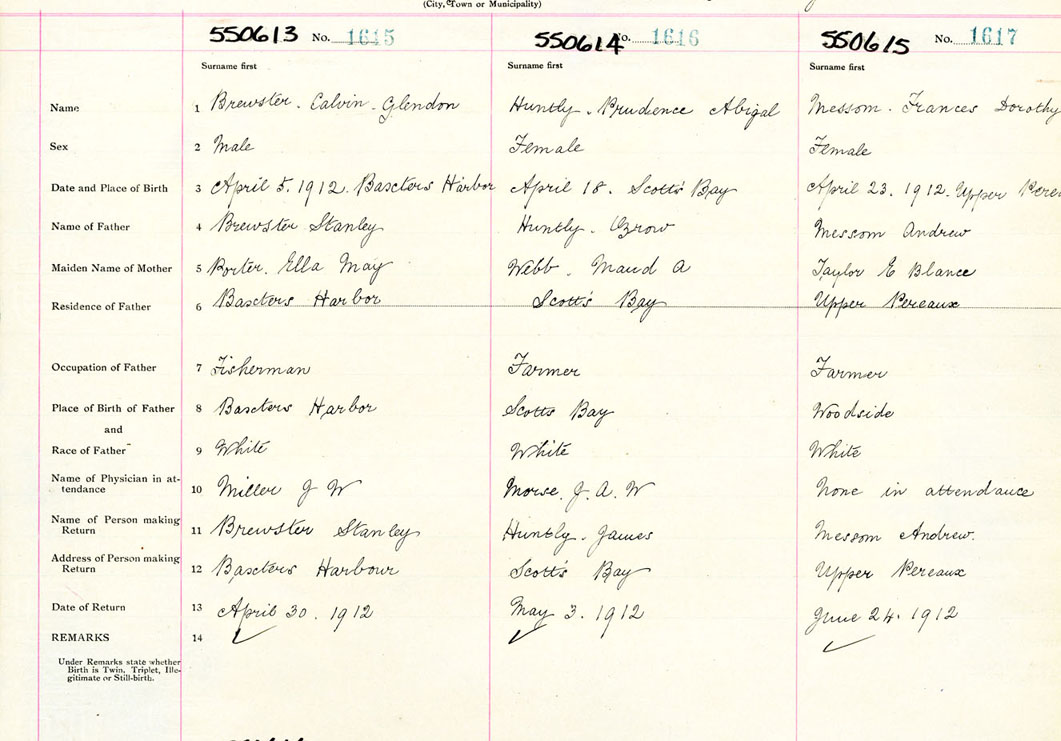 (City, Town or Municipality)
550613 No. 1615 550614 No. 1616 550615 No. 1617
Surname first Surname first Surname first
Name 1 Brewster. Calvin. Glendon Huntly. Prudience Abigal Messom. Frances Dorothy
Sex 2 Male Female Female
Date and Place of Birth 3 April 5. 1912. Baxters Harbor April 18. Scott's Bay April 23. 1912. Upper
Name of Father 4 Brewster Stanley Huntly. Messom Andrew
Maiden Name of Mother 5 Porter. Ella May Webb. Maud A Taylor E Blance
Residence of Father 6 Baxters Harbor Scott's Bay Upper Pereaux
Occupation of Father 7 Fisherman Farmer Farmer
Place of Birth of Father 8 Baxters Harbor Scotts Bay Woodside
and
Race of Father 9 White White White
Name of Physician in at-
tendance 10 Miller J W Morse. J. A. W None in attendance
Name of Person making
Return 11 Brewster Stanley Huntly. James Messom Andrew.
Address of Person making
Return 12 Baxters Harbour Scott's Bay Upper Pereaux
Date of Return 13 April 30. 1912 May 3. 1912 June 24. 1912
REMARKS 14
Under Remarks state whether
Birth is Twin, Triplet, Ille-
gitimate or Still-birth.